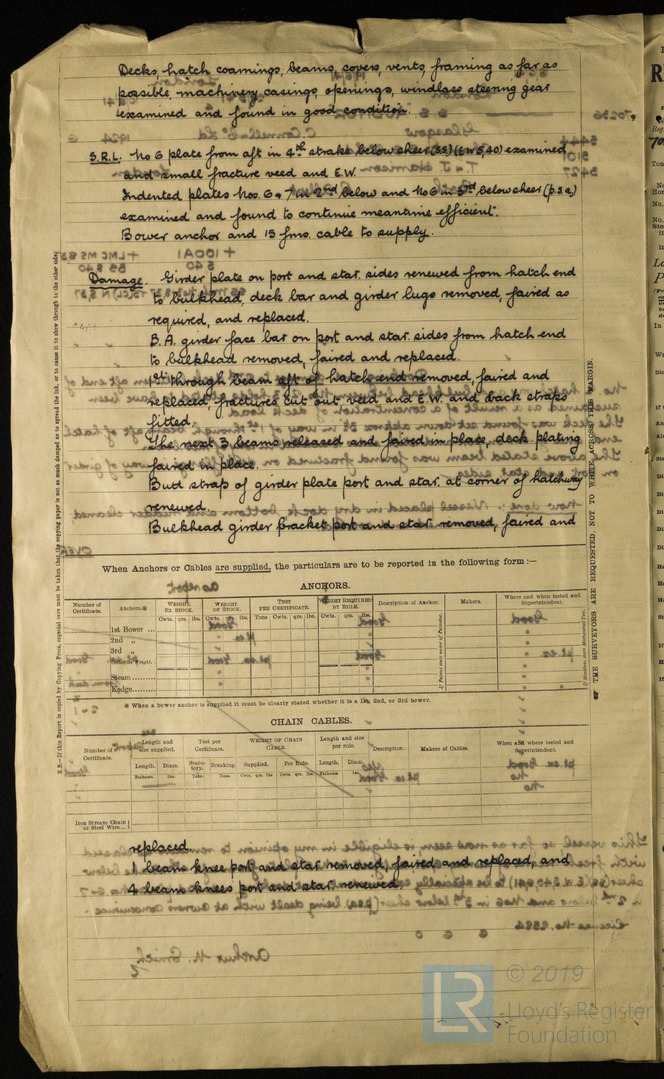 Decks, hatch coamings, beams, covers, vents, framing as far as
possible, machinery casings, openings, windlass steering gear
examined and found in good condition.
S.R.L. No 6 plate from aft in 4th strake below sheer (SS) (EW 5,40) examined
and small fracture veed and E.W.
Indented plates Nos. 6 & 7 in 2nd below and No 6 in 3rd below sheer (p.s.a.)
examined and found to continue meantime efficient.
Bower anchor and 15 fms. cable to supply.
Damage. Girder plate on port and star. sides renewed from hatch end
to bulkhead, deck bar and girder lugs removed, faired as
required, and replaced.
B.A. girder face bar on port and star. sides from hatch end
to bulkhead removed, faired and replaced.
1st through beam aft of hatch end removed faired and
replaced, fractures cut out, veed and E.W. and back straps
fitted.
The next 3 beams released and faired in place, deck plating
faired in place.
Butt strap of girder plate port and star. at corner of hatchway
renewed.
Bulkhead girder bracket port and star removed, faired and
When Anchors or Cables are supplied, the particulars are to be reported in the following form :—
ANCHORS.
Number of Certificate. Anchors.※ WEIGHT. EX. STOCK. WEIGHT OF STOCK. TEST PER CERTIFICATE. WEIGHT REQUIRED BY RULE. Description of Anchor. Makers. Where and when tested and Superintendent.
Cwts. qrs. lbs. Cwts. qrs. lbs. Tons Cwts. qrs. lbs. Cwts. qrs. lbs.
1st Bower ...
2nd „
3rd „
Steam
Kedge
※ When a bower anchor is supplied it must be clearly stated whether it is a 1st, 2nd, or 3rd bower.
CHAIN CABLES.
Number of Certificate. Length and size supplied. Test per Certificate. WEIGHT OF CHAIN CABLE. Length and size per rule. Description. Makers of Cables. When and where tested and Superintendent.
Length. Diam. Statutory. Breaking. Supplied. Per Rule. Length. Diam.
Fathoms. Ins. Tons. Tons. Cwts. qrs. lbs. Cwts. qrs. lbs. Fathoms. Ins.
Iron Stream Chain or Steel Wire
replaced.
1 beams knee port and star removed, faired and replaced, and
4 beams knees port and star. renewed.
N.B.—If this Report is copied by Copying Press, especial care must be taken that the copying paper is not so much damped as to spread the ink, or to cause it to show through to the other side.
THE SURVEYORS ARE REQUESTED NOT TO WRITE ACROSS THIS MARGIN.
LR
© 2019
Lloyd's Register
Foundation